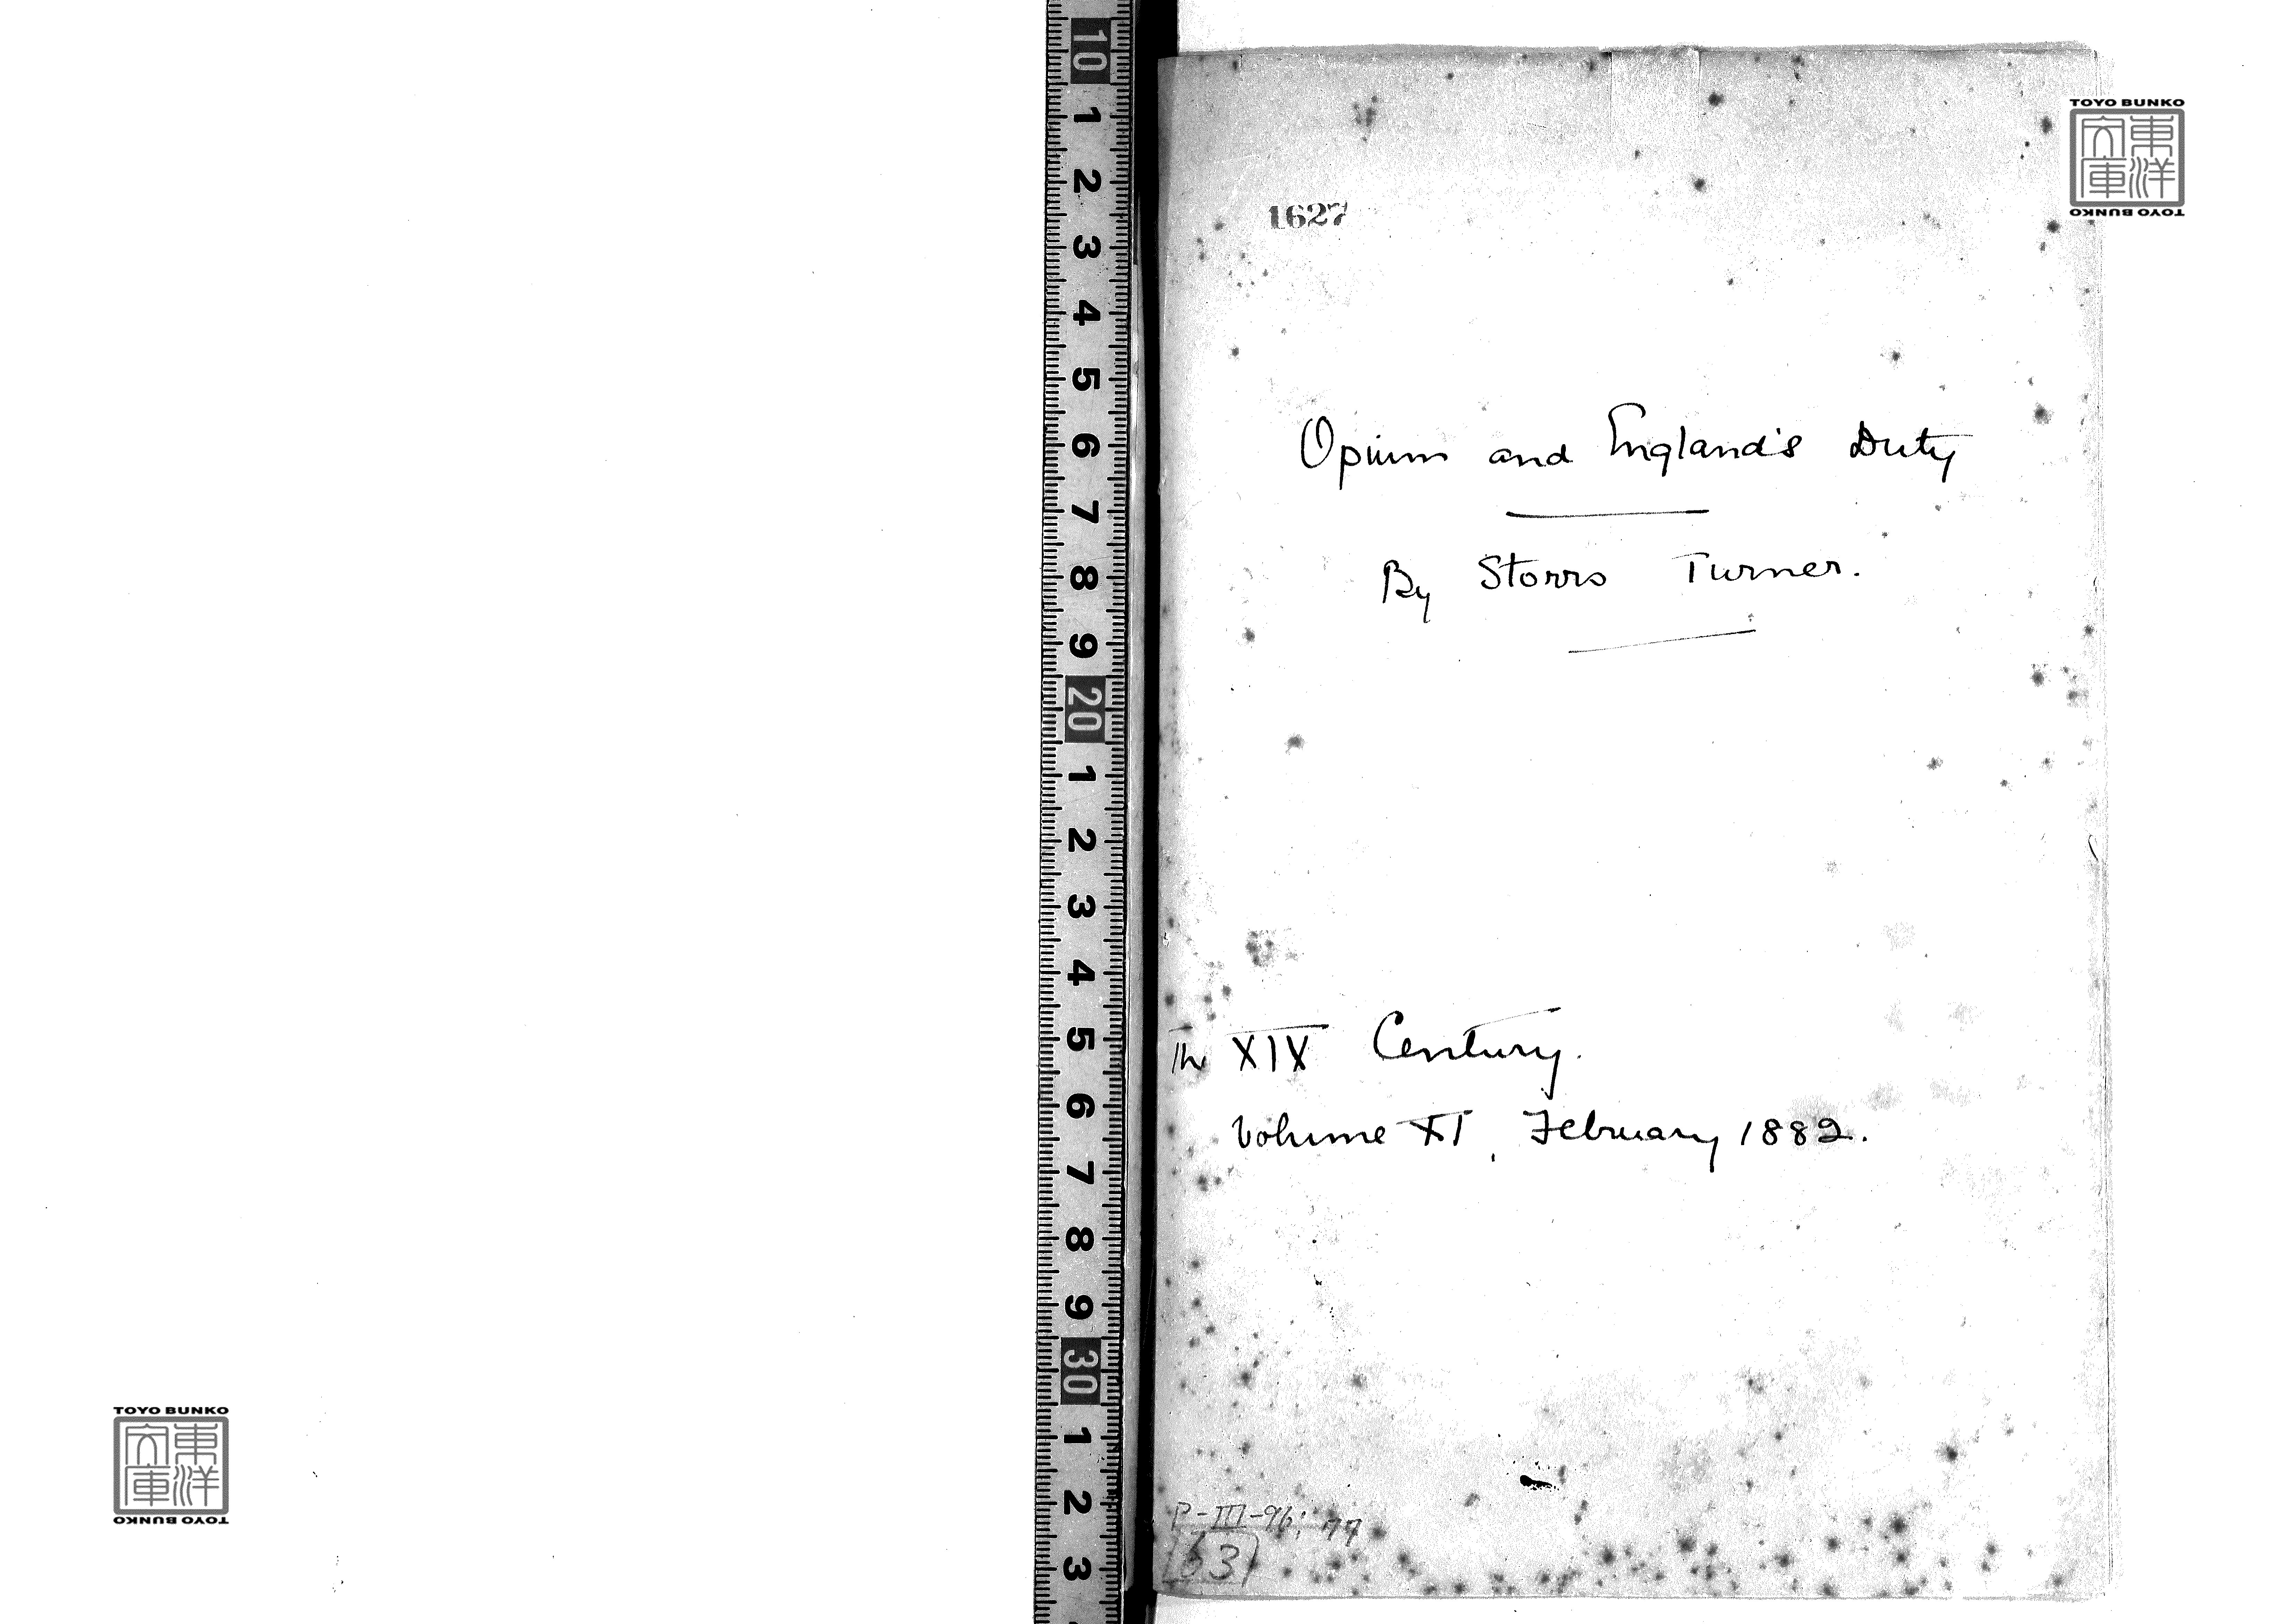 1627
Opium and England's Duty
By Storrs Turner.
The XIX Century.
Volume XI, February 1882.
P-III-96; 77
63
10
1
2
3
4
5
6
7
8
9
20
1
2
3
4
5
6
7
8
9
30
1
2
3
TOYO BUNKO
東洋
文庫
TOYO BUNKO
TOYO BUNKO
東洋
文庫
TOYO BUNKO